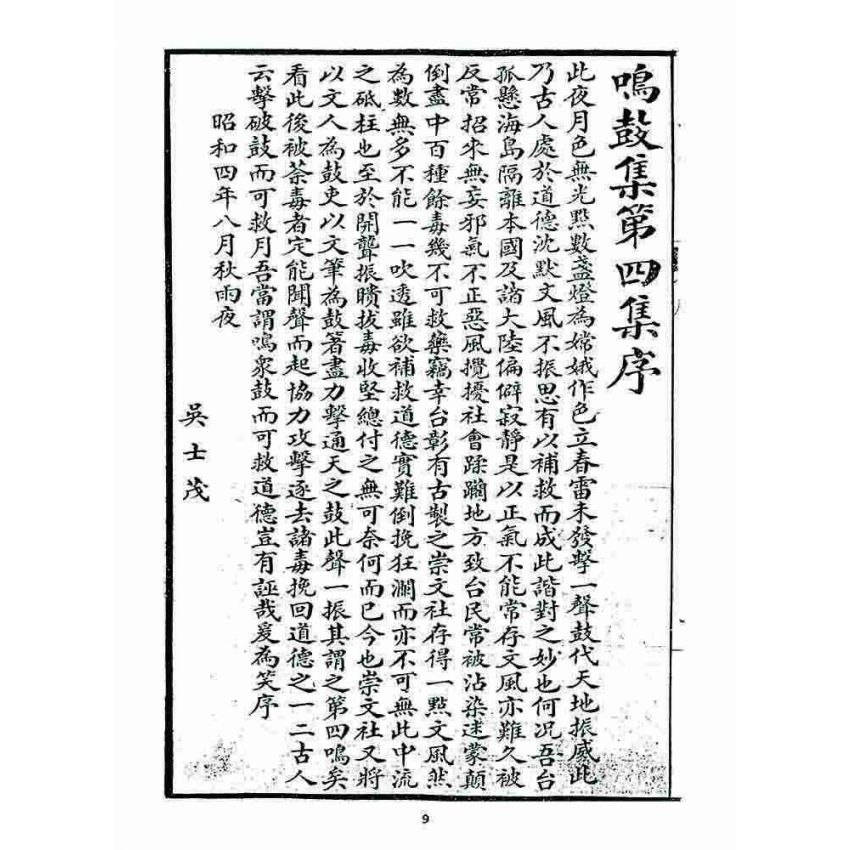 鳴鼓集第四集序
此夜月色無光點數盞燈為嫦娥作色立春雷未發擊一聲鼓代天地振威此
乃古人處於道德沈默文風不振思有以補救而成此諧對之妙也何況吾台
孤懸海島隔離本國及諸大陸偏僻寂靜是以正氣不能常存文風亦難久被
反常招來無妄邪氣不正惡風攪擾社會蹂躪地方致台民常被沾染迷蒙顛
倒盡中百種餘毒幾不可救藥竊幸台彰有古製之崇文社存得一點文風然
為數無多不能一一吹透雖欲補救道德實難倒挽狂瀾而亦不可無此中流
之砥柱也至於開聾振聵拔毒收堅總付之無可奈何而已今也崇文社又將
以文人為鼓吏以文筆為鼓箸盡力擊通天之鼓此聲一振其謂之第四鳴矣
看此後被荼毒者定能聞聲而起協力攻擊逐去諸毒挽回道德之一二古人
云擊破鼓而可救月吾當謂鳴眾鼓而可救道德豈有誣哉爰為笑序
昭和四年八月秋雨夜
吳士茂
9